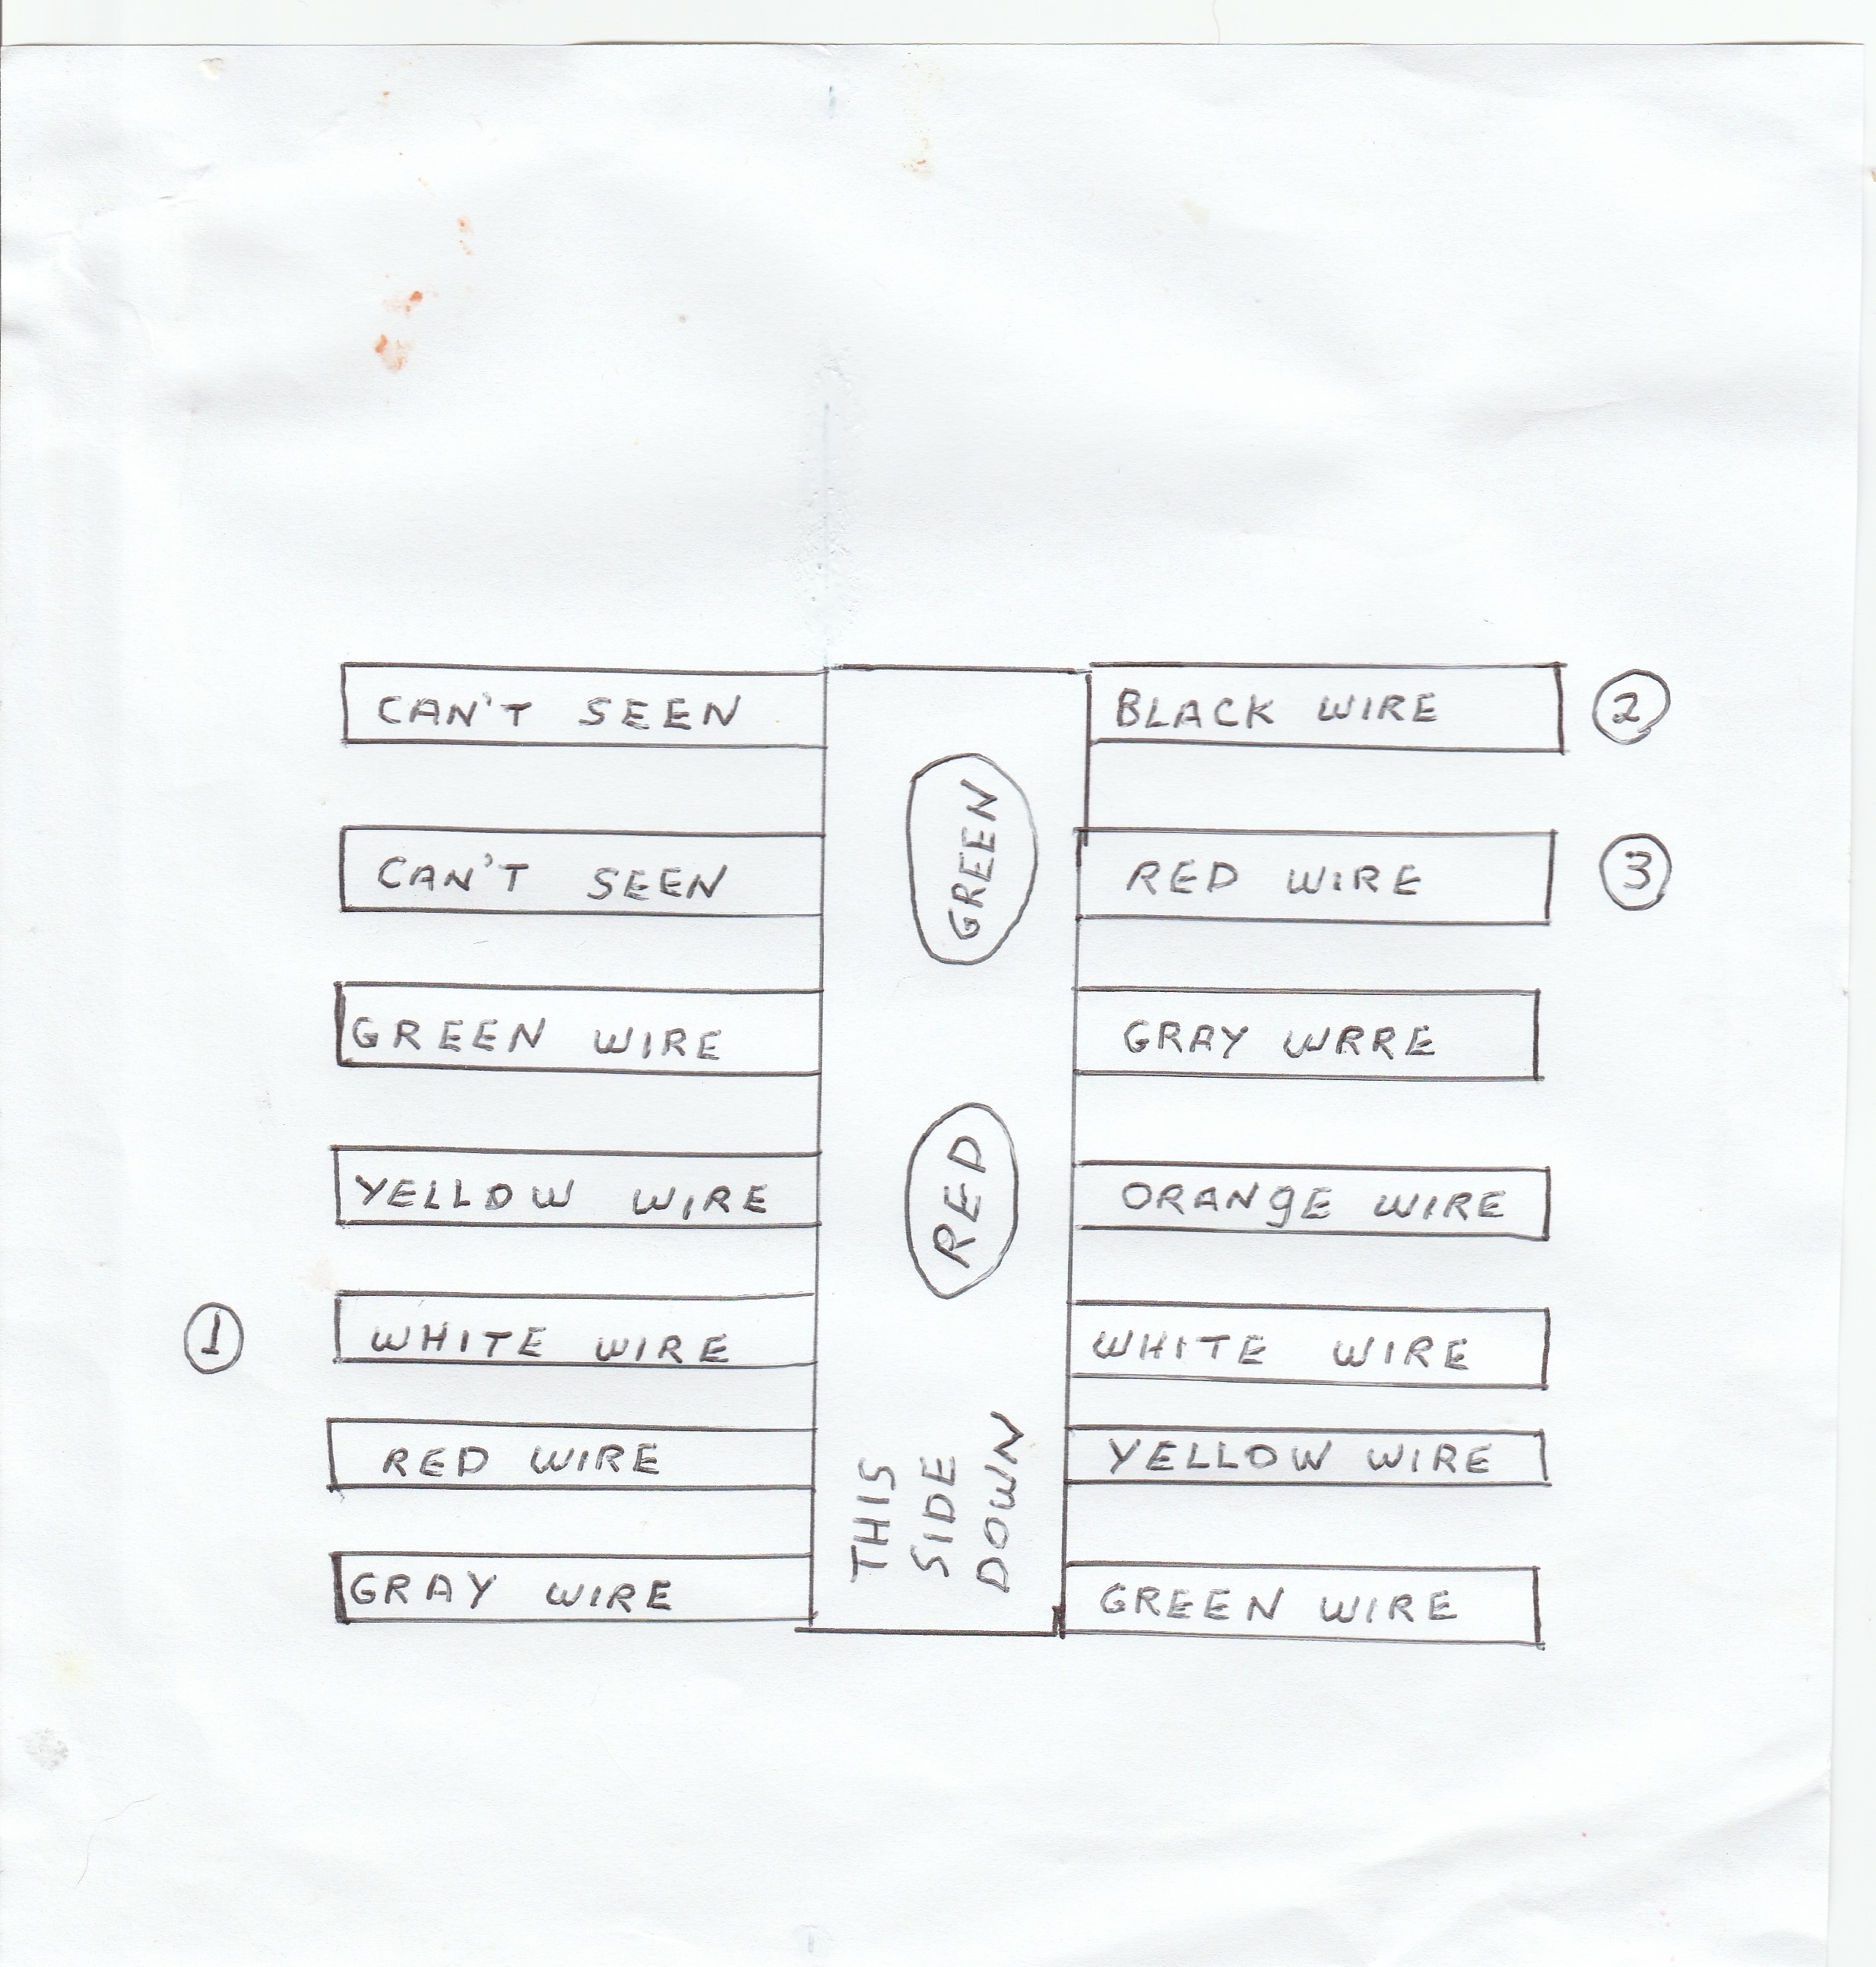 CAN'T SEEN
BLACK WIRE
2
CAN'T SEEN
GREEN
RED WIRE
3
GREEN WIRE
GRAY WRRE
YELLOW WIRE
RED
ORANgE WIRE
1
WHITE WIRE
WHITE WIRE
RED WIRE
THIS
SIDE
DOWN
YELLOW WIRE
GRAY WIRE
GREEN WIRE